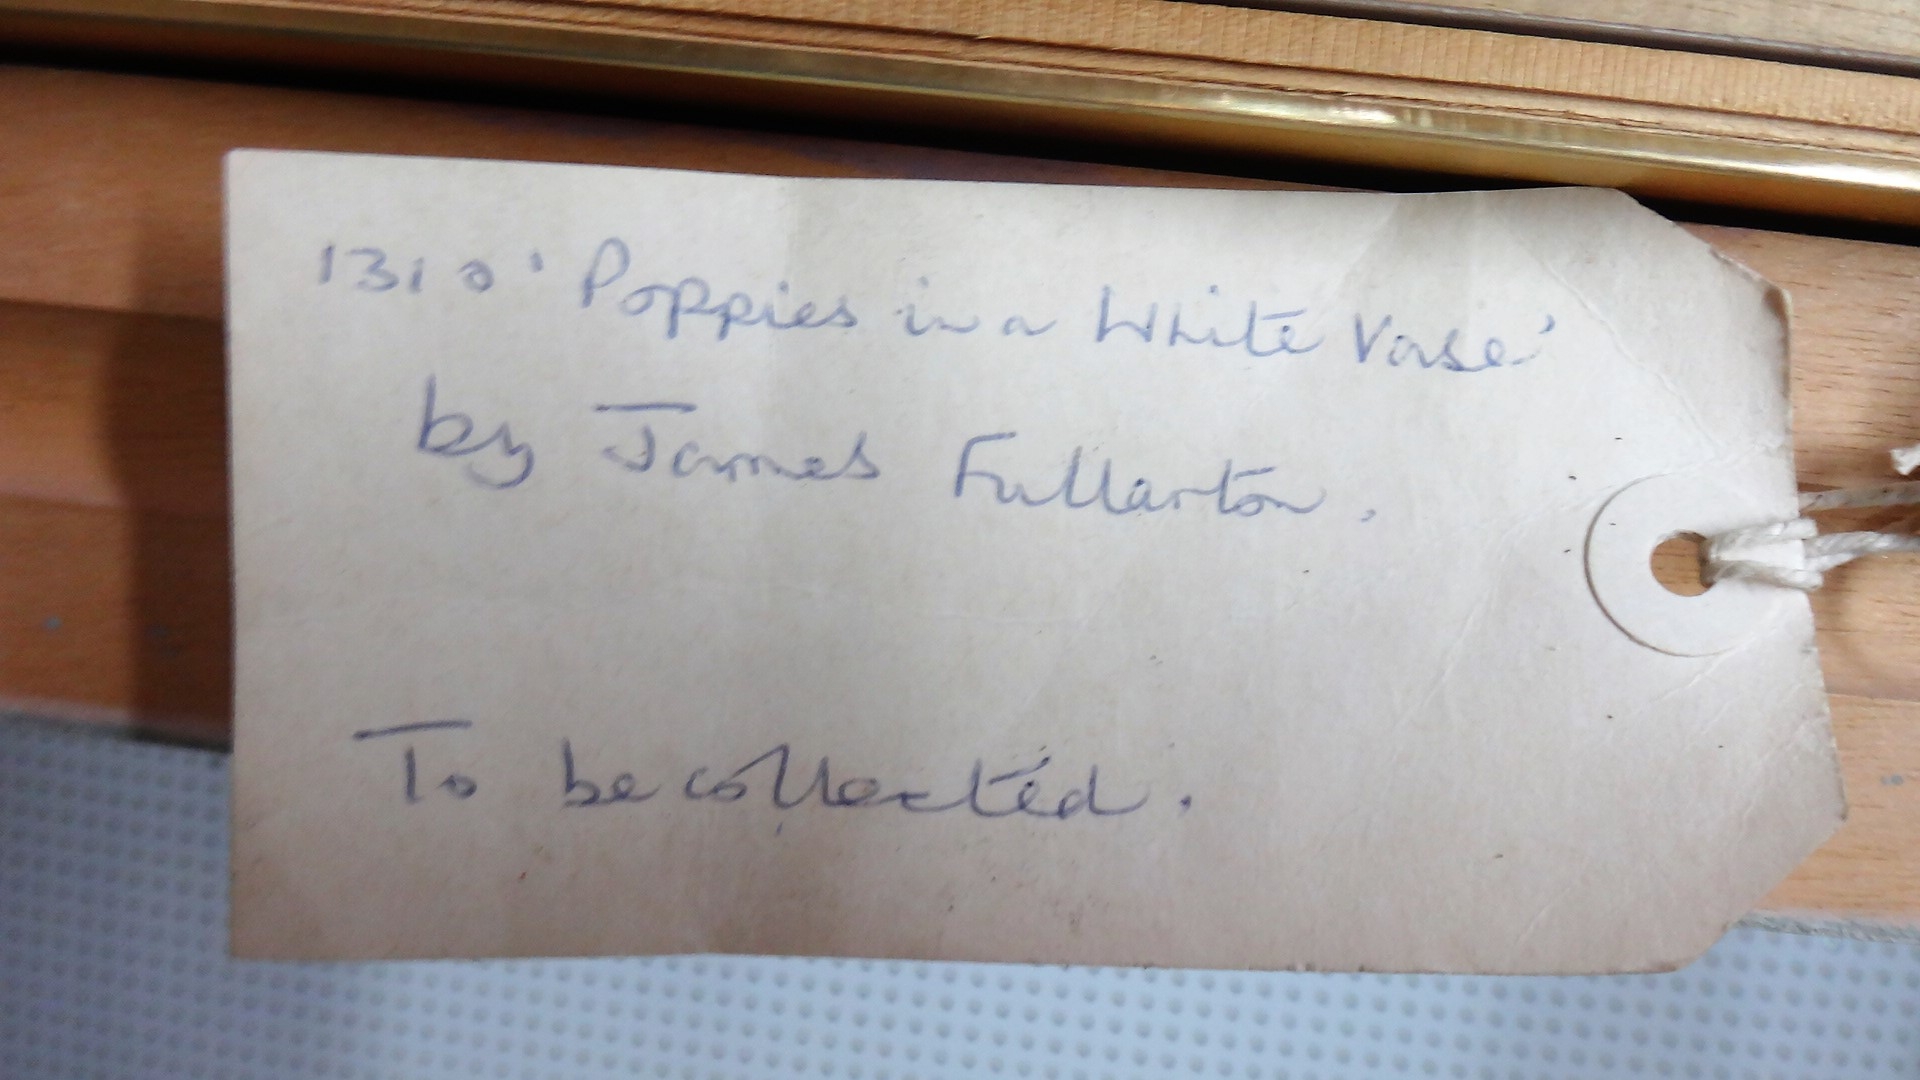 1310 'Poppies in a White Vase'
by James Fullarton.
To be collected.